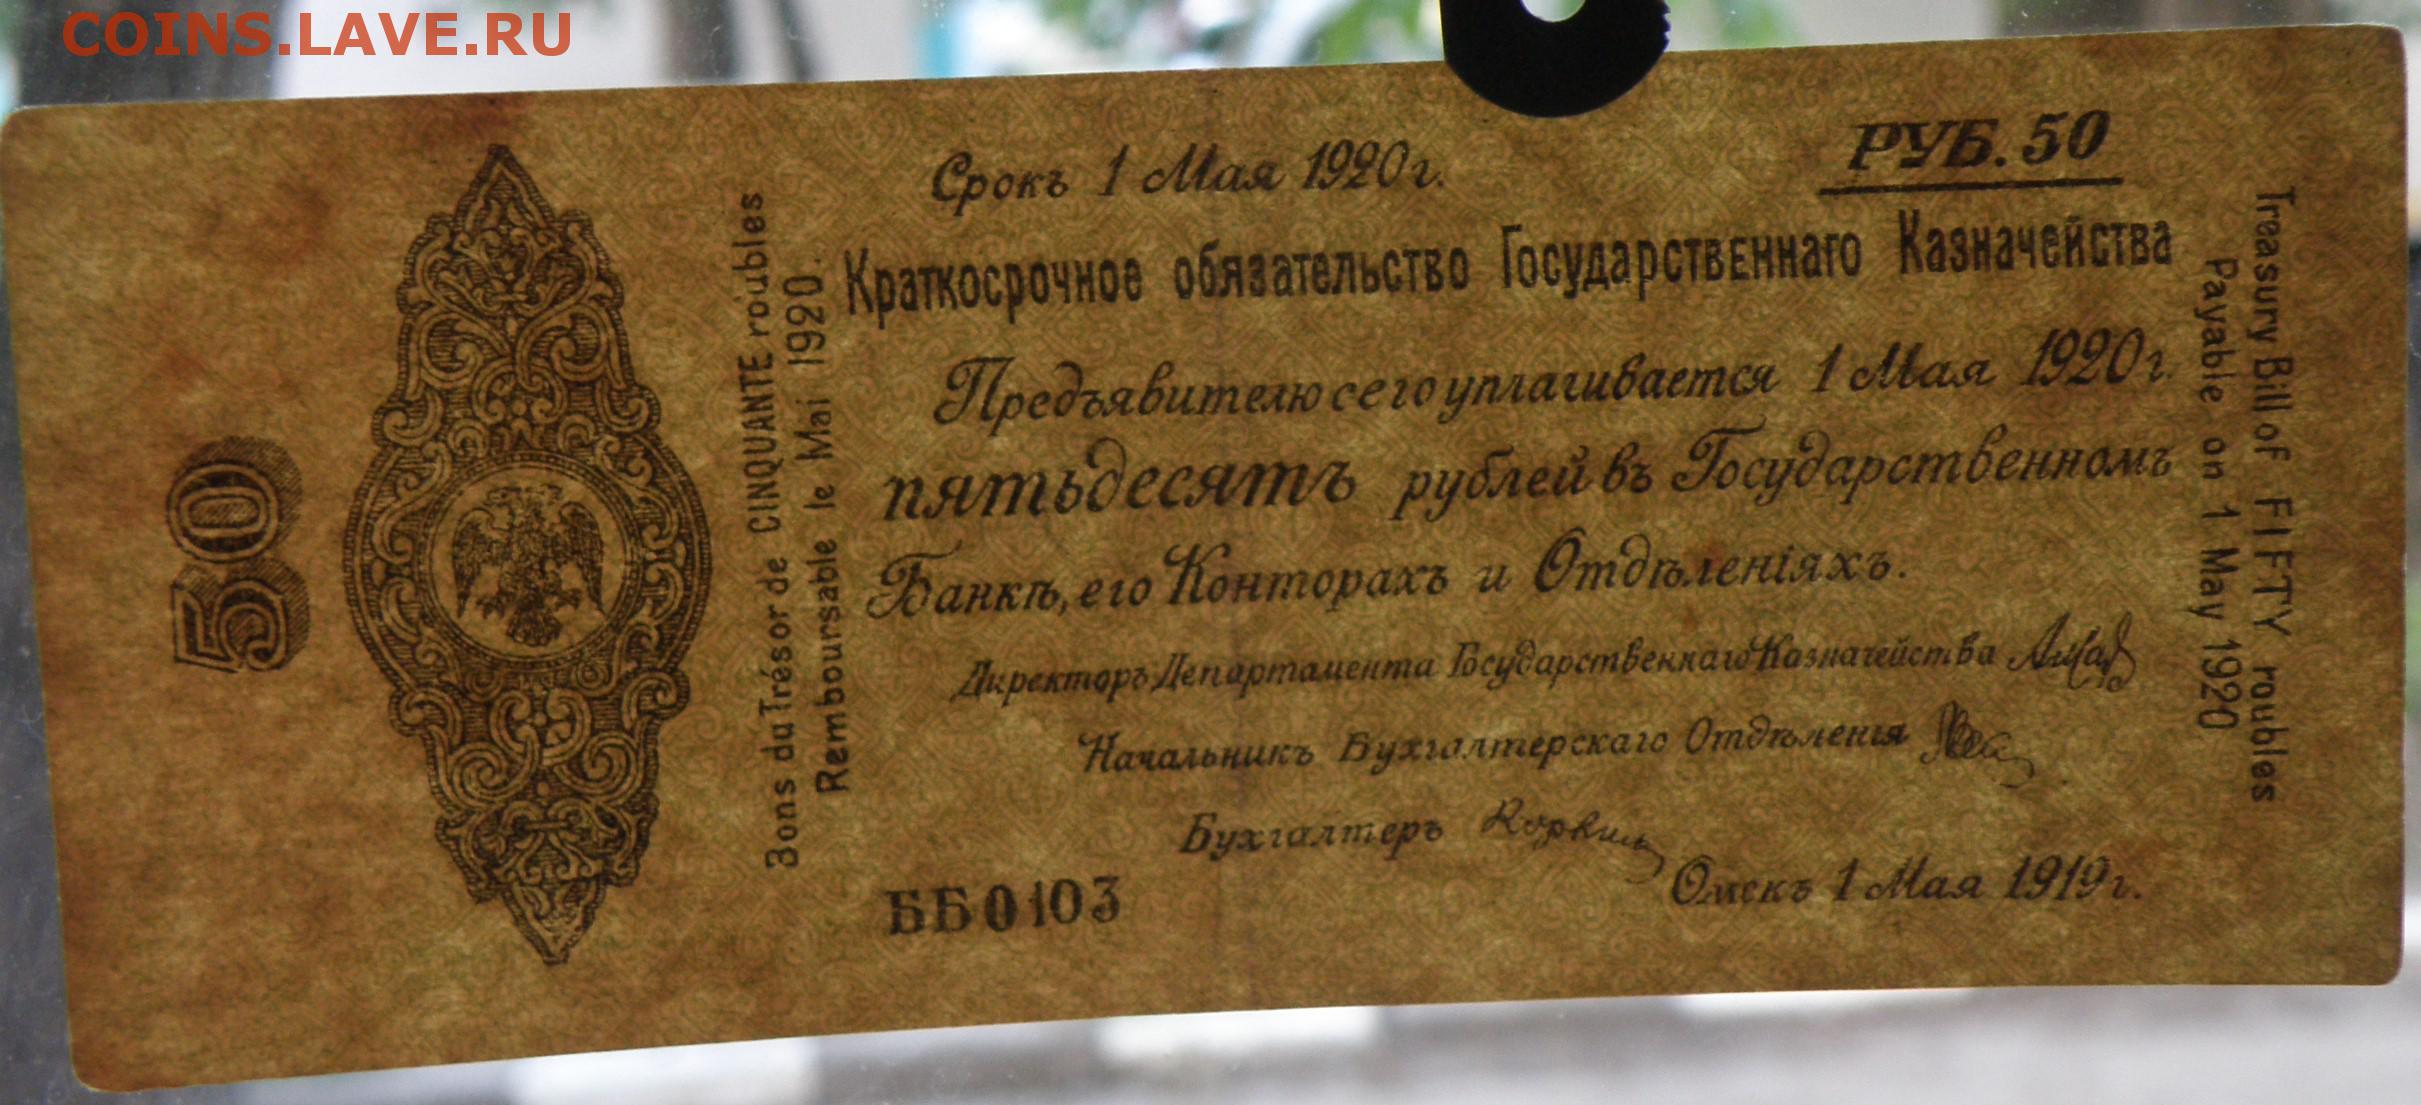 COINS.LAVE.RU
РУБ. 50
Срокъ 1 Мая 1920 г.
Краткосрочное обязательство Государственнаго Казначейства
Предъявителю сего уплачивается 1 Мая 1920 г.
пятьдесятъ рублей въ Государственномъ
Банкѣ, его Конторахъ и Отдѣленіяхъ.
Директоръ Департамента Государственнаго Казначейства
Начальникъ Бухгалтерскаго Отдѣленія
Бухгалтеръ
ББ0103
Омскъ 1 Мая 1919 г.
50
Bons du Trésor de CINQUANTE roubles
Remboursable le Mai 1920.
Treasury Bill of FIFTY roubles
Payable on 1 May 1920